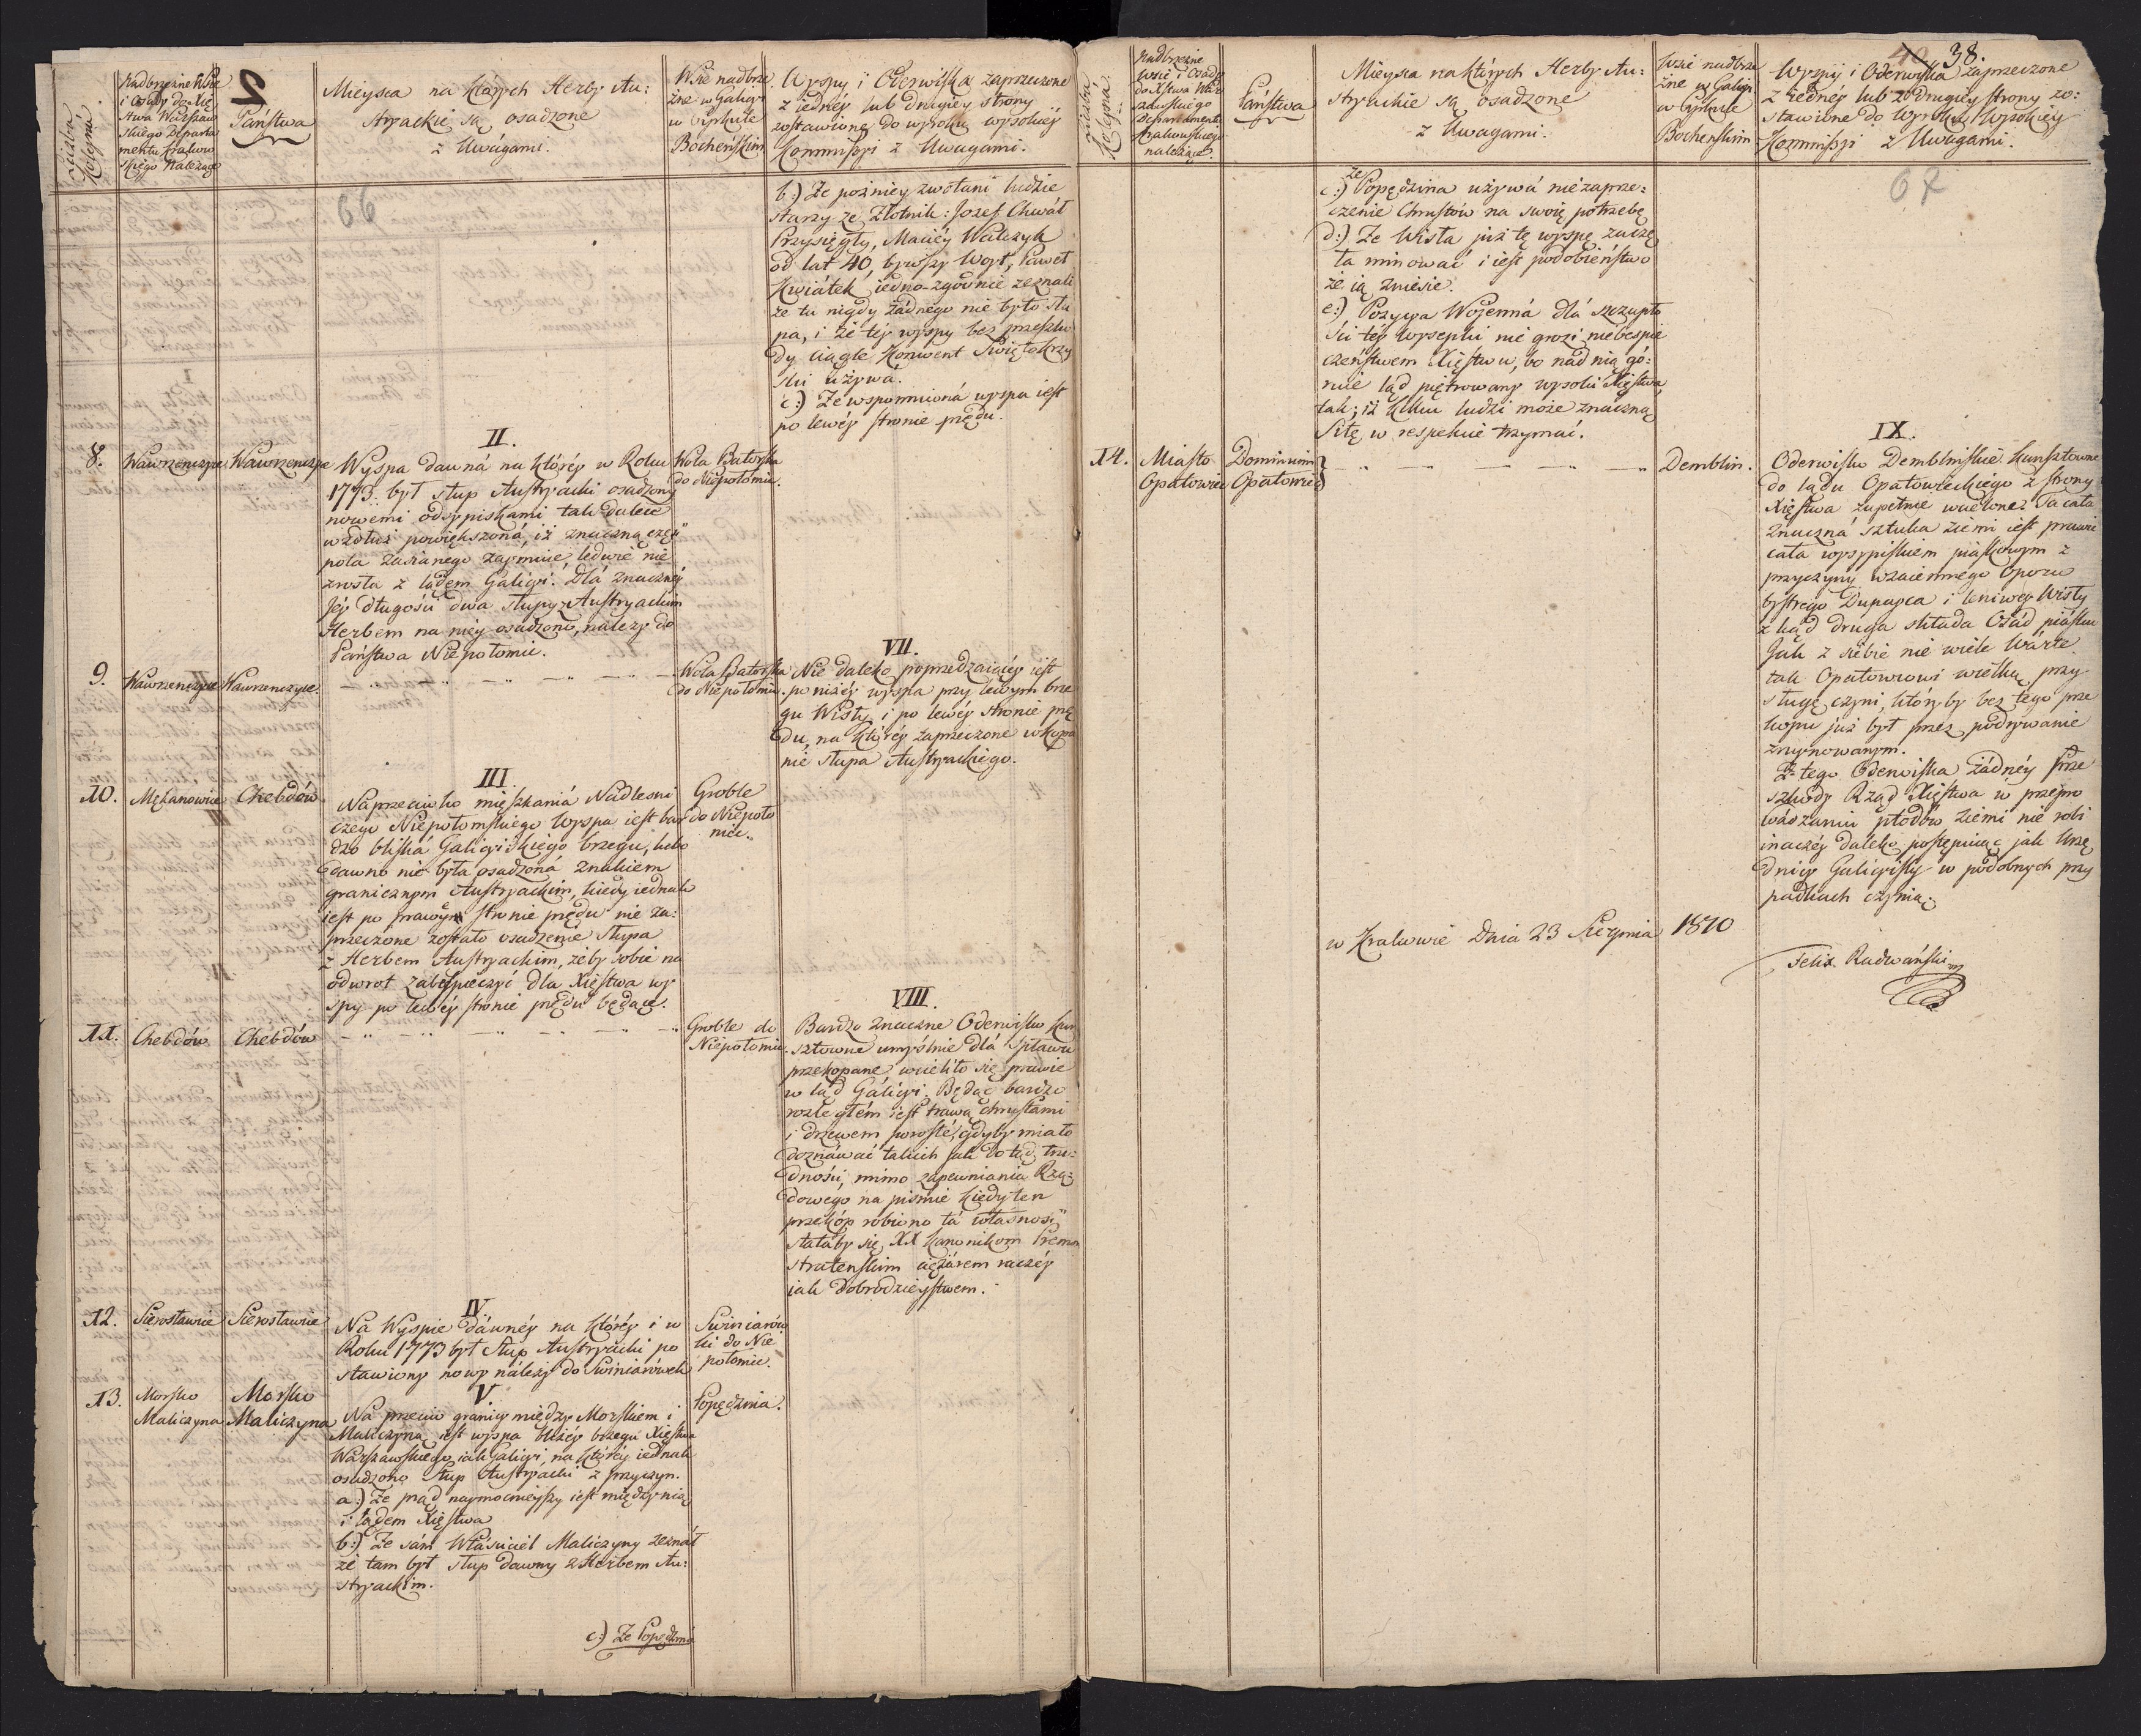 Liczba
Koleyná.
Nadbrzeżne Wsie
i Osady do Xię
stwa Warszaw
skiego Departa
mentu Krakow
skiego Należące
2
Państwa
Mieysca na których Herby Au:
stryackie są osadzone
z Uwagami.
Wsie nadbrze
żne w Galicyi
w Cyrkule
Bocheńskim
Wyspy i Oderwiska zaprzeczone
z iednéy lub drugiéy strony
zostawione do wyroku wysokiéy
Kommissyi z Uwagami.
66
b.) Ze poźniey zwołani ludzie
starzy ze Złotnik: Jozef Chwáł
Przysięgły, Maciéy Walczyk
od lat 40, bywszy Woyt, Paweł
Kwiátek iedno-zgodnie zeznali
że tu nigdy żádnego nie było słu
pa, i że téy wyspy bez przeszko
dy ciągle Konwent Swiętokrzy
ski używá.
c.) Ze wspomnioná wyspa iest
po lewéy stronie prędu.
8.
Wawrzenczyce
Wawrzenczyce
II.
Wyspa dawná na któréy w Roku
1773. był słup Austryacki osadzony
nowemi odsypiskami tak dalece
wzdłuż powiększoná, iż znaczną częś
pola zasianego zaymuie, ledwie nie
zrosła z lądem Galicyi. Dlá znacznéy
Jéy długości dwa słupy z Austryackim
Herbem na niéy osadzono, należy do
Państwa Niepołomic.
Wola Batorska
do Niepołomic.
9.
Wawrzenczyce
Wawrzenczyce.
Wola Batorska
do Niepołomic.
VII.
Nie daleko poprzedzaiącéy iest
poniżéy wyspa przy lewym brze
gu Wisły i po lewéy stronie prę
du, na któréy zaprzeczone wkopa
nie słupa Austryackiego.
10.
Mękanowice
Chebdów
III.
Naprzeciwko mięszkaniá Nadleśni
czego Niepołomskiego Wyspa iest bar
dzo bliská Galicyiskiego brzegu, lubo
dawno nie była osadzoná znakiem
granicznym Austryackim, kiedy iednak
iest po prawéy stronie prędu nie za:
przeczone zostało osadzenie słupa
z Herbem Austryackim, żeby sobie na
odwrot zabespieczyć dlá Xięstwa wy
spy po lewéy stronie prędu będące.
Groble
do Niepoło
mic.
11.
Chebdów
Chebdów
Groble do
Niepołomic.
VIII.
Bardzo znaczne Oderwisko kun
sztowne umyślnie dlá spławu
przekopane, wcieliło się prawie
w ląd Gálicyi. Będąc bardzo
rozległém iest trawą, chrustami
i drzewem porosłe, gdyby miało
doznáwać takich jak dotąd tru:
dności, mimo zapewniania Rzą:
dowego na piśmie kiedy ten
przekóp robiono tá własnosś
stałaby się XX Kanonikom Premon
stratenskim ciężárem raczéy
iak dobrodzieystwem.
12.
Sierosławice
Sierosławice
IV.
Na Wyspie dáwnéy na któréy i w
Roku 1773 był słup Austryácki po
stawiony nowy náleży do Swiniarówek
Swiniarów
ki do Nie
połomic.
13.
Morsko
Maliczyna
Morsko
Maliczyna
V.
Na przeciw granicy między Morskiem i
Maliczyną iest wyspa bliżéy brzegu Xięstwa
Warszawskiego iak Galicyi, na któréy iednak
osadzono słup Austryácki z przyczyn.
a.) Ze prąd naymocnieyszy iest między nią
i lądem Xięstwa
b.) Ze sám Właściciel Maliczyny zeznáł
że tam był słup dawny z Herbem Au:
stryackim.
Popędzina.
c.) Ze Popędzina
Liczba
Koleyná.
Nadbrzeżne
Wsie i Osady
do Xstwa War
szawskiego
Departamentu
Krakowskiego
należące.
Państwa
Mieysca na których Herby Au:
stryackie są osadzone
z Uwagami.
Wsie nadbrze
żne w Galicyi
w Cyrkule
Bochenskim
38.
Wyspy i Oderwiska zaprzeczone
z iednéy lub z drugiéy strony zo:
stawione do Wyroku Wysokiéy
Kommissyi z Uwagami.
67
c.) Ze Popędzina używá niezaprze:
czenie Chrustów na swoię potrzebę
d.) Ze Wisła już tę wyspę zaczę
ła minować i iest podobieństwo
że ią zniesie.
e.) Pozycya Wojenná dlá szczupło
ści téy wysepki nie grozi niebespie
czeństwem Xięstwu, bo nad nią gó:
ruie ląd piętrowany wysoki Xięstwa,
tak, iż kilku ludzi może znaczną
siłę w respekcie trzymać.
14.
Miasto
Opatowiec
Dominium
Opatowiec
Demblin.
IX.
Oderwisko Demblińskie kunsztowne
do lądu Opatowieckiego z strony
Xięstwa zupełnie wcielone. Ta cała
znaczná sztuka ziemi iest prawie
cała wysypiskiem piaskowym z
przyczyny wzaiemnego oporu
bystrego Dunayca i leniwey Wisły
z kąd druga składa osad piasku
Jak z siebie nie wiele wárte
tak Opatowcowi wielką przy
sługę czyni, któryby bez tego prze
kopu już był przez podrywanie
zruynowanym.
Z tego Oderwiska żádnéy prze
szkody Rząd Xięstwa w przepro
wádzaniu płodów ziemi nie robi
inaczéy daleko postępuiąc jak Urzę
dnicy Galicyiscy w podobnych przy
padkach czynią.
w Krakowie Dnia 23 Sierpnia 1810
Felix Radwański